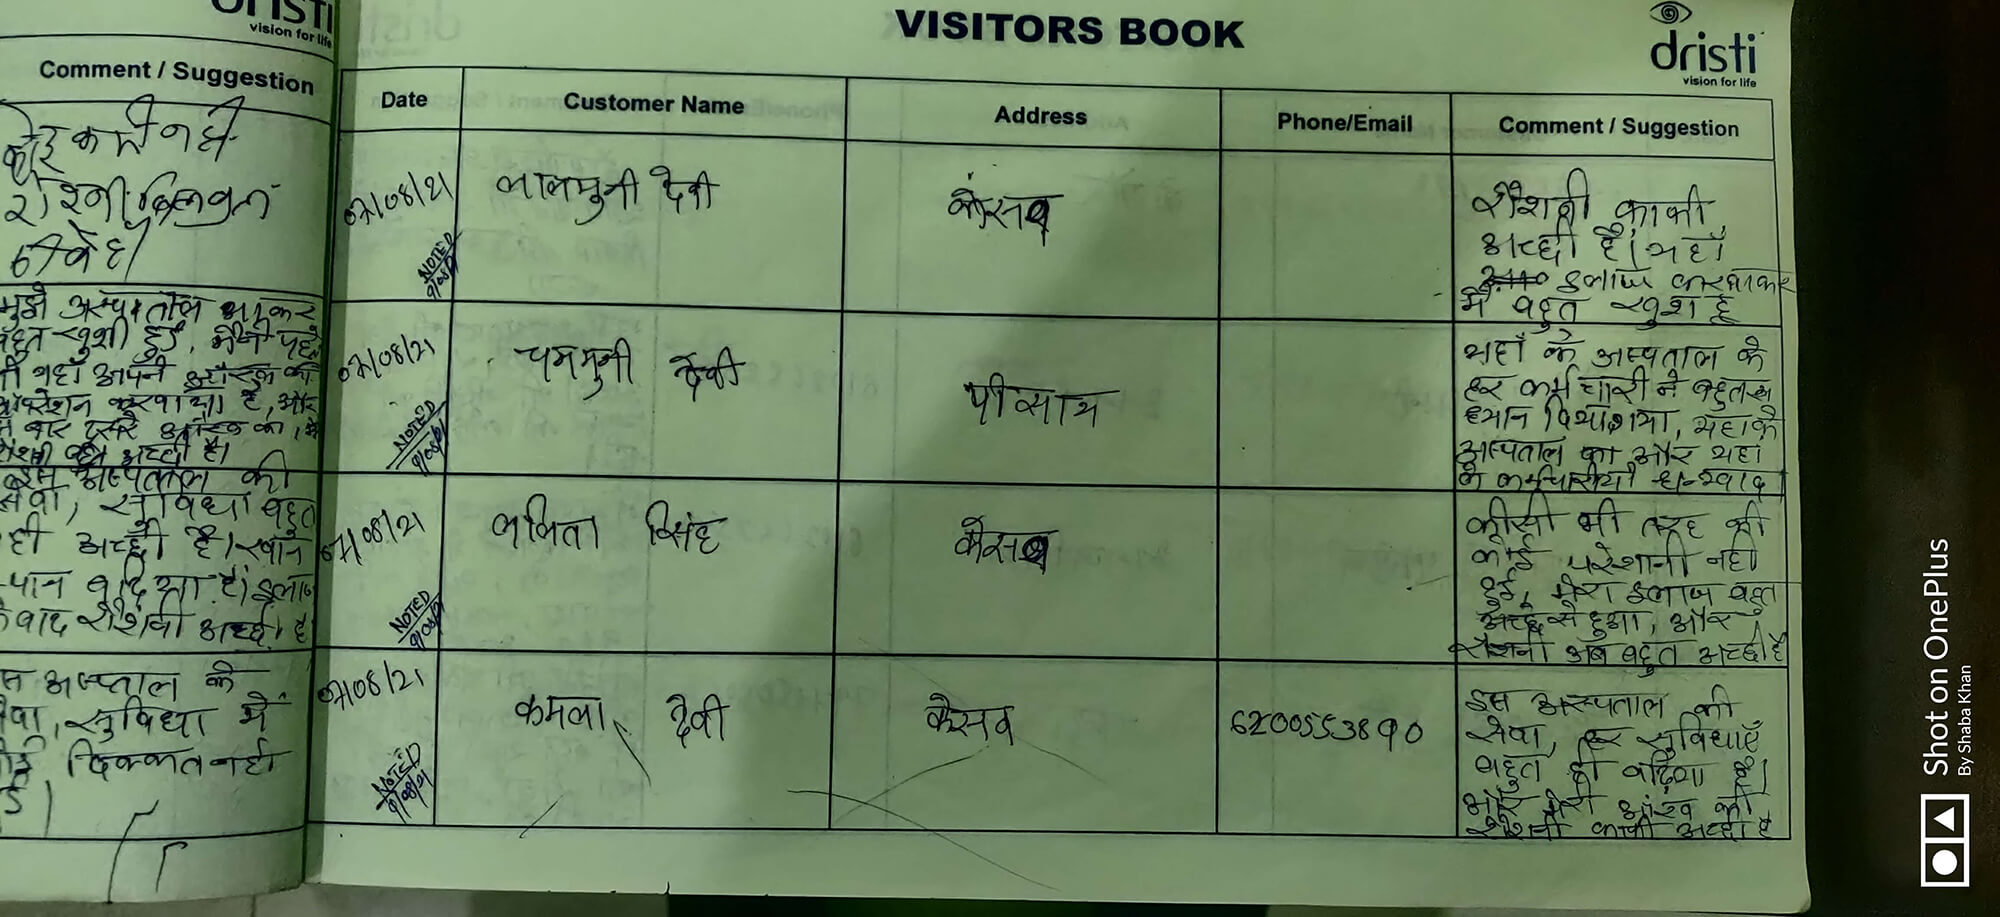 dristi
vision for life
Comment / Suggestion
कोई कमी नही
रोशनी बिलकुल
ठीक है।
मुझे अस्पताल आकर
बहुत खुशी हुई, मैंने पहले
भी यहाँ अपने आँख का
ऑपरेशन करवाया है, और
बार दूसरे आँख का,
रोशनी बहुत अच्छी है।
इस अस्पताल की
सेवा, सुविधा बहुत
ही अच्छी है। खान
पान बढ़िया है। इलाज
के बाद रोशनी अच्छी है
इस अस्पताल के
सेवा, सुविधा में
कोई दिक्कत नहीं
है।
VISITORS BOOK
dristi
vision for life
Date Customer Name Address Phone/Email Comment / Suggestion
07/08/21 लालमुनी देवी कोसव
NOTED
9/08/21
रोशनी काफी
अच्छी है। यहाँ
इलाज करवाकर
मैं बहुत खुश हूँ
07/08/21 चममुनी देवी
NOTED
9/08/21
यहाँ के अस्पताल के
हर कर्मचारी ने बहुत
ध्यान दिया गया, यहाके
अस्पताल का और यहां
के कर्मचारीयों धन्यवाद।
07/08/21 ललिता सिंह कोसव
NOTED
9/08/21
कीसी भी तरह की
कोई परेशानी नही
हुई, मेरा इलाज बहुत
अच्छे से हुआ, और
रोशनी अब बहुत अच्छी है
07/08/21 कमला देवी केसव 6200553890
NOTED
9/08/21
इस अस्पताल की
सेवा, हर सुविधाएँ
बहुत ही बढ़िया है।
और मेरी आंख की
रोशनी काफी अच्छी है
Shot on OnePlus
By Shaba Khan